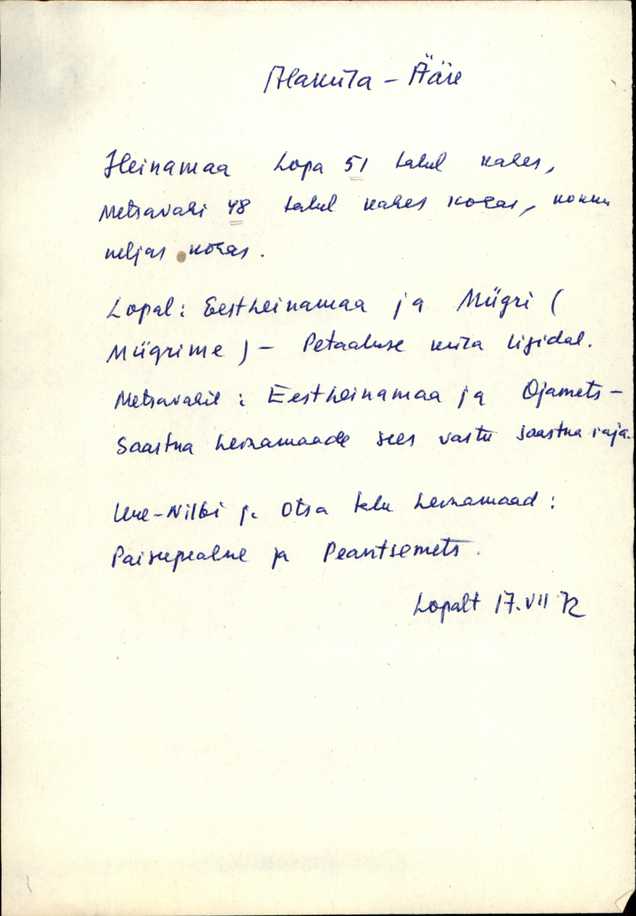 Alaküla – Ääre
Heinamaa Lopa 51 talul kahes,
Metsavahi 48 talul kahes kohas, kokku
neljas kohas.
Lopal: Eestheinamaa ja Müigri (
Müigrime) – Petaaluse küla ligidal.
Metsavahil: Eestheinamaa ja Ojamets –
Saastna heinamaade sees vastu Saastna raja.
Uue-Nilbi ja Otsa talu heinamaad:
Paisupealne ja Peantsemets.
Lopalt 17.VII 72